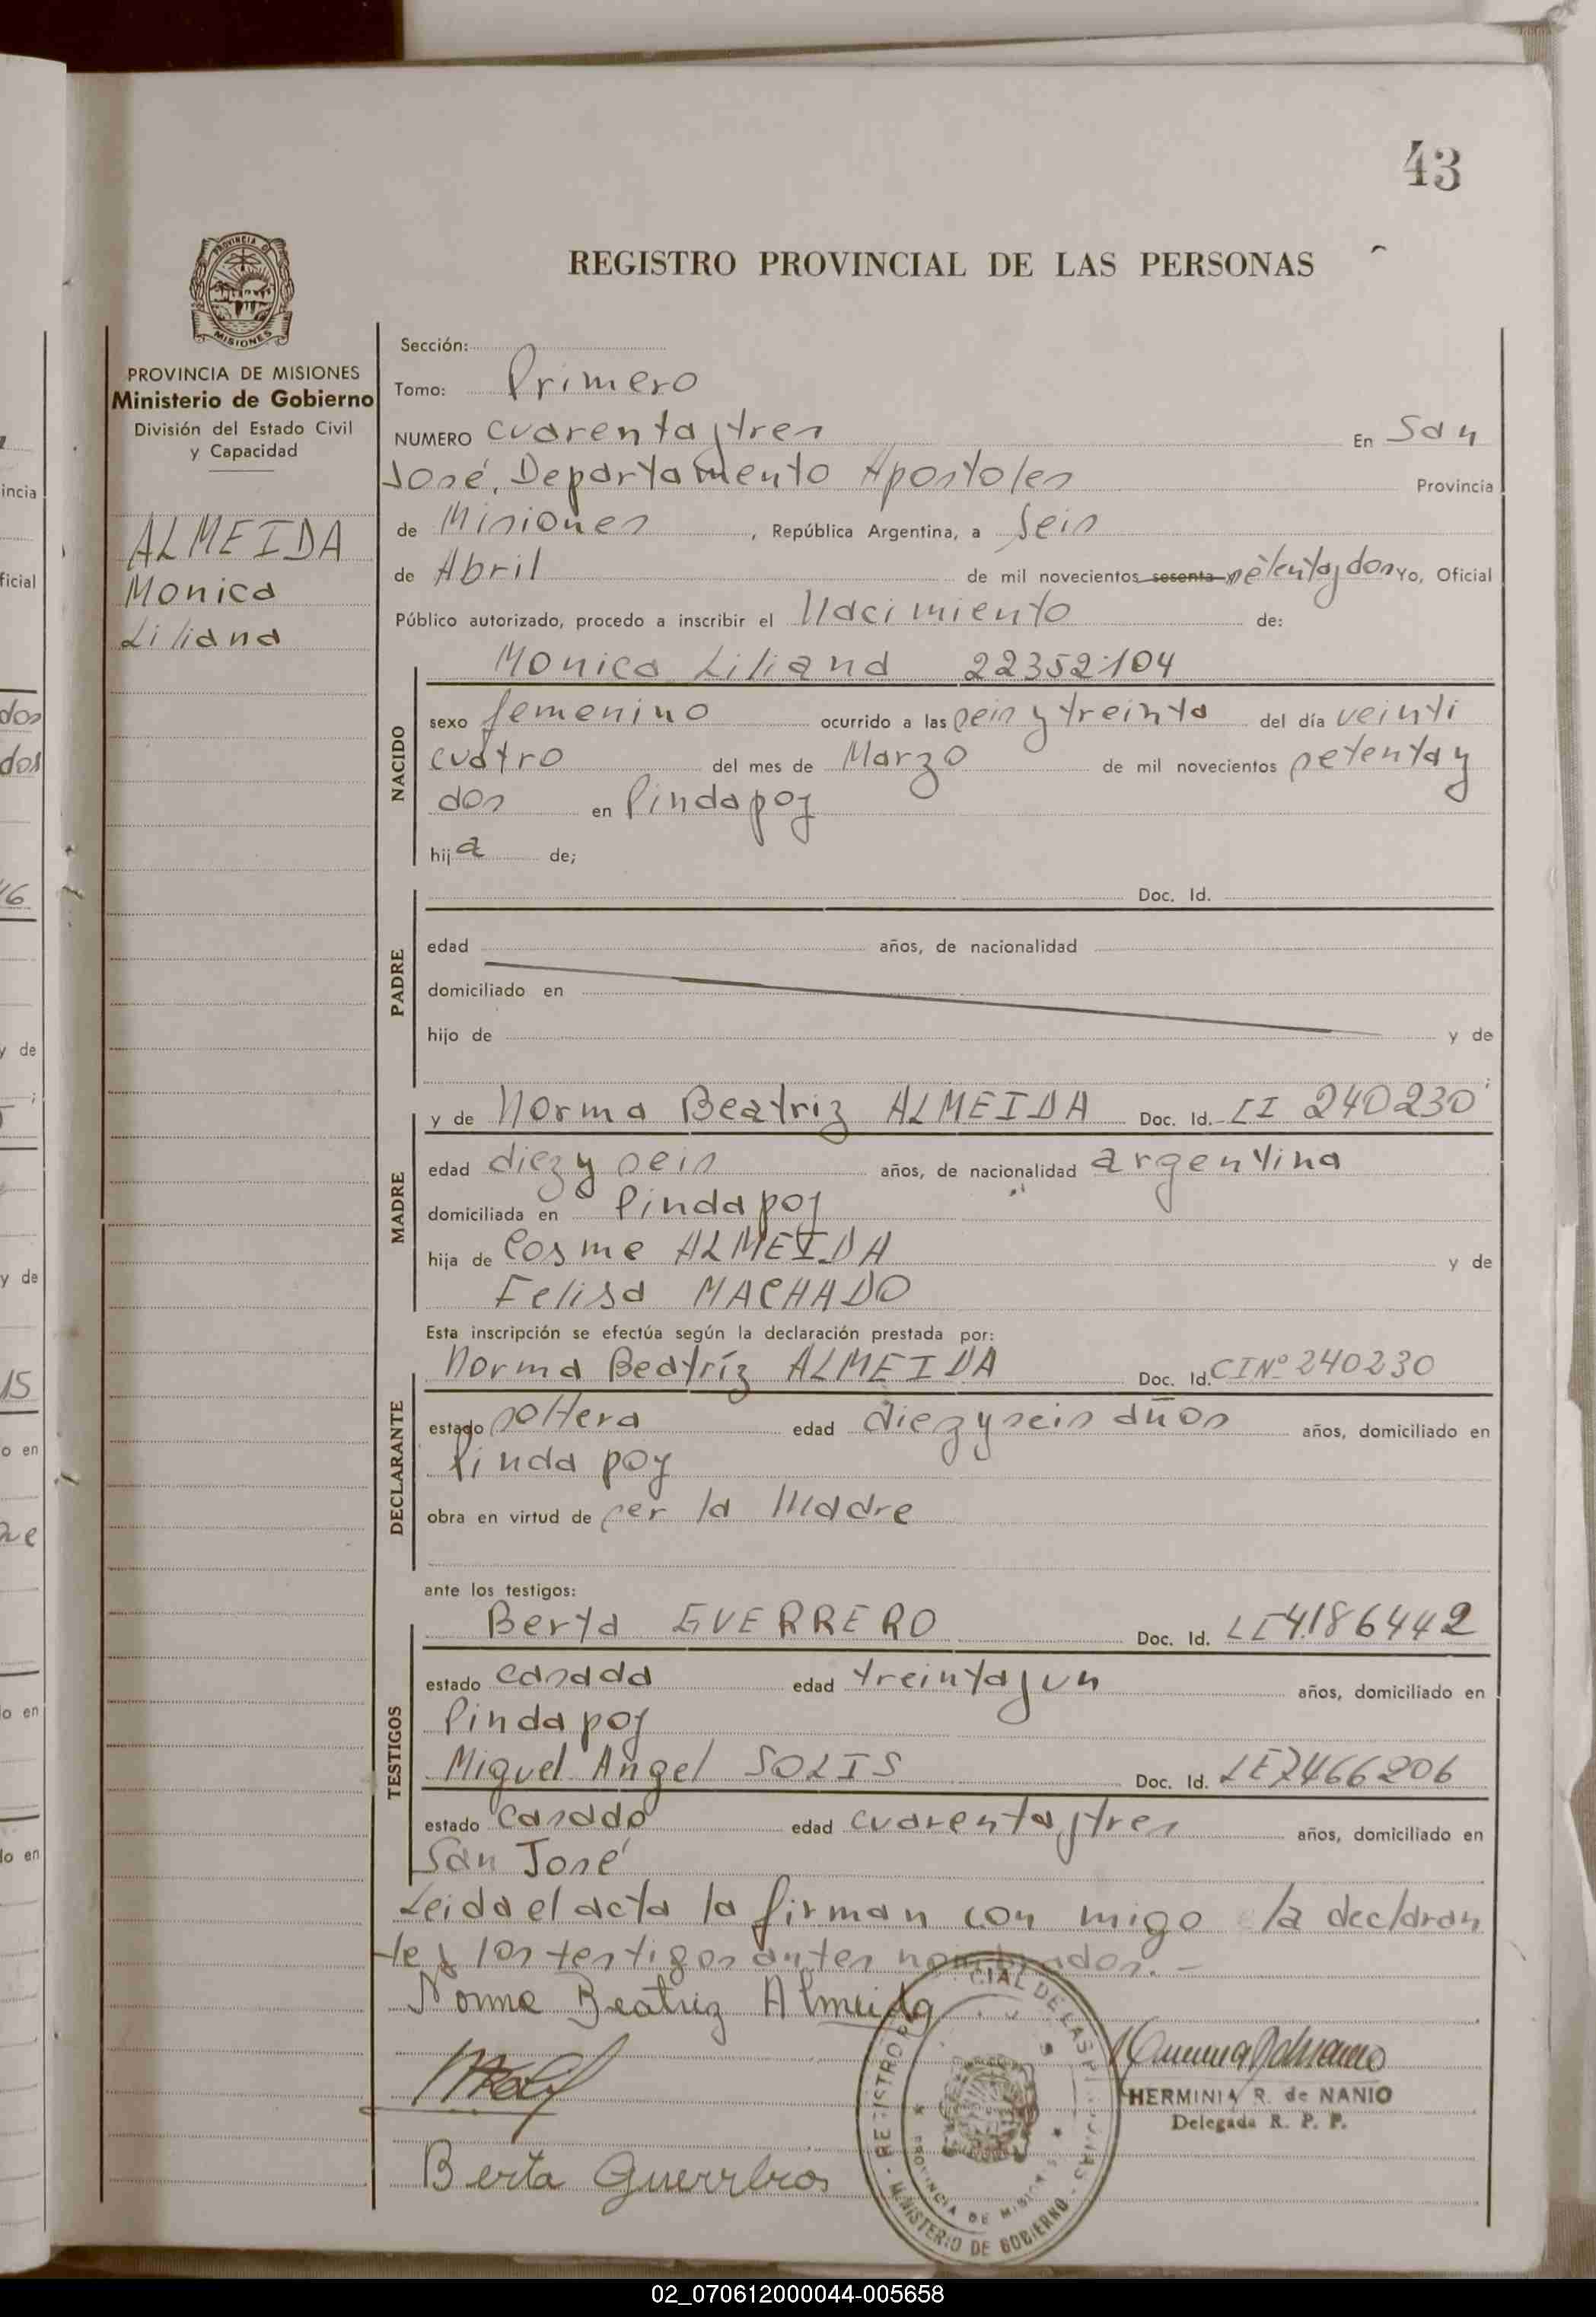 43
REGISTRO PROVINCIAL DE LAS PERSONAS
PROVINCIA DE
MISIONES
PROVINCIA DE MISIONES
Ministerio de Gobierno
División del Estado Civil
y Capacidad
ALMEIDA
Monica
Liliana
Sección:
Tomo: Primero
NUMERO cuarenta y tres En San
José, Departamento Apostoles Provincia
de Misiones, República Argentina, a seis
de Abril de mil novecientos sesenta y setenta y dos Yo, Oficial
Público autorizado, procedo a inscribir el Nacimiento de:
Monica Liliana 22352104
NACIDO
sexo femenino ocurrido a las seis y treinta del día veinti
cuatro del mes de Marzo de mil novecientos setenta y
dos en Pindapoy
hija de;
PADRE
Doc. Id.
edad años, de nacionalidad
domiciliado en
hijo de y de
MADRE
y de Norma Beatriz ALMEIDA Doc. Id. CI 240230
edad diez y seis años, de nacionalidad argentina
domiciliada en Pindapoy
hija de Cosme ALMEIDA y de
Felisa MACHADO
Esta inscripción se efectúa según la declaración prestada por:
DECLARANTE
Norma Beatríz ALMEIDA Doc. Id. CI Nº 240230
estado soltera edad diez y seis años años, domiciliado en
Pinda poy
obra en virtud de ser la Madre
ante los testigos:
TESTIGOS
Berta GUERRERO Doc. Id. 4.186442
estado casada edad treinta y un años, domiciliado en
Pindapoy
Miguel Angel SOLIS Doc. Id. LE 7466206
estado casado edad cuarenta y tres años, domiciliado en
San José
Leida el acta la firman con migo la declaran
te y los testigos antes nombrados.-
Norma Beatriz Almeida
HERMINIA R. de NANIO
Delegada R. P. P.
Berta Guerrero
MINISTERIO DE GOBIERNO
PROVINCIA DE MISIONES
incia
ficial
dos
dos
y de
y de
15
o en
o en
lo en
02_070612000044-005658